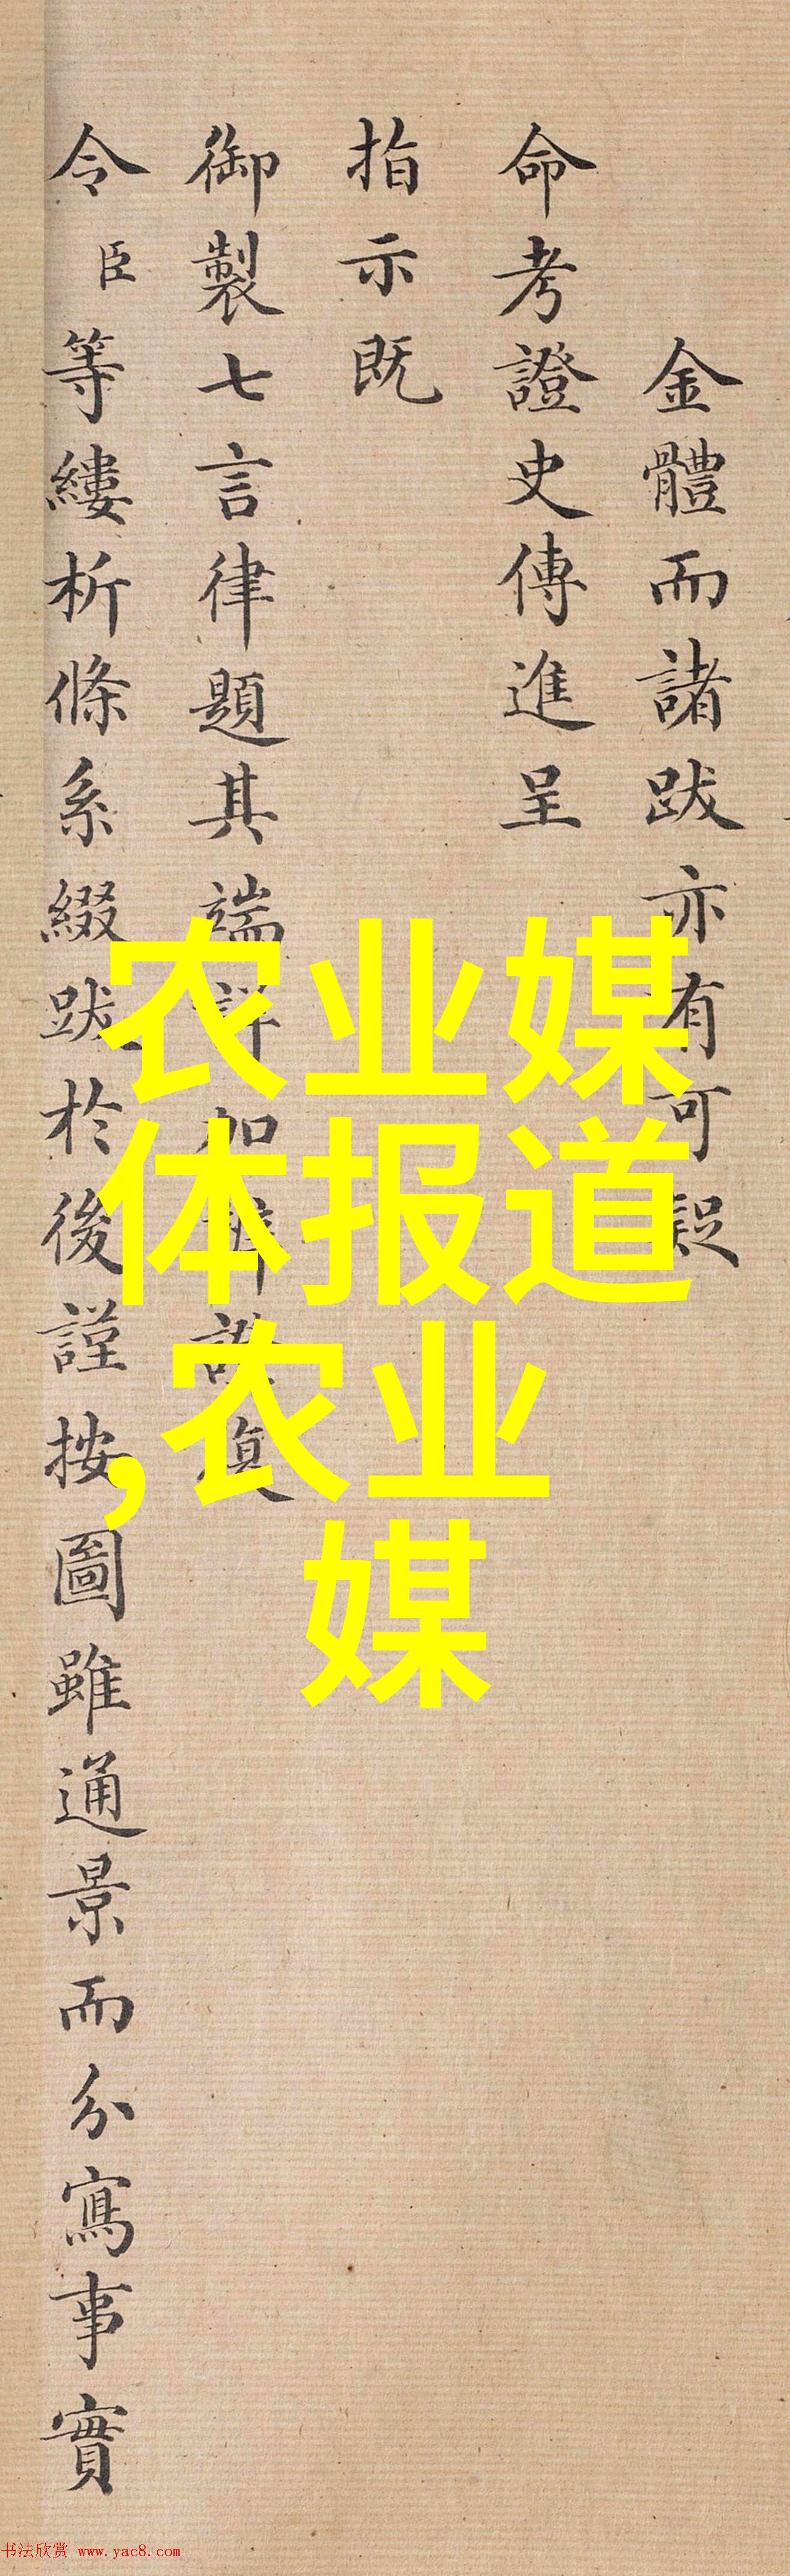 金體而諸跋亦有可疑
命考證史傳進呈
指示既
御製七言律題其端詳加辨證復
令臣等縷析條系綴跋於後謹按圖雖通景而分寫事實
农业媒
体报道
,农业
媒
书法欣赏 www.yac8.com